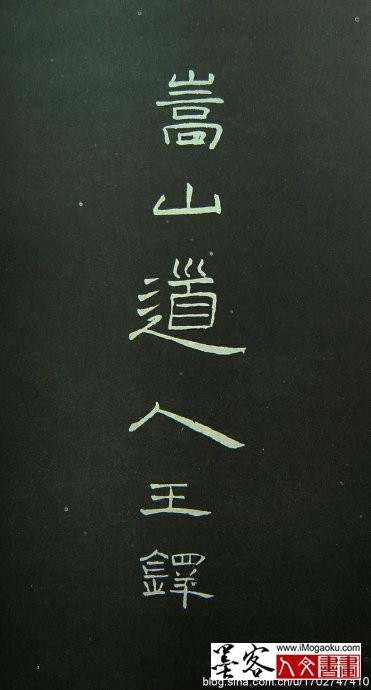 嵩山道人王鐸
www.iMogaoku.com
墨客人文書畫
blog.sina.com.cn/u/1702747410